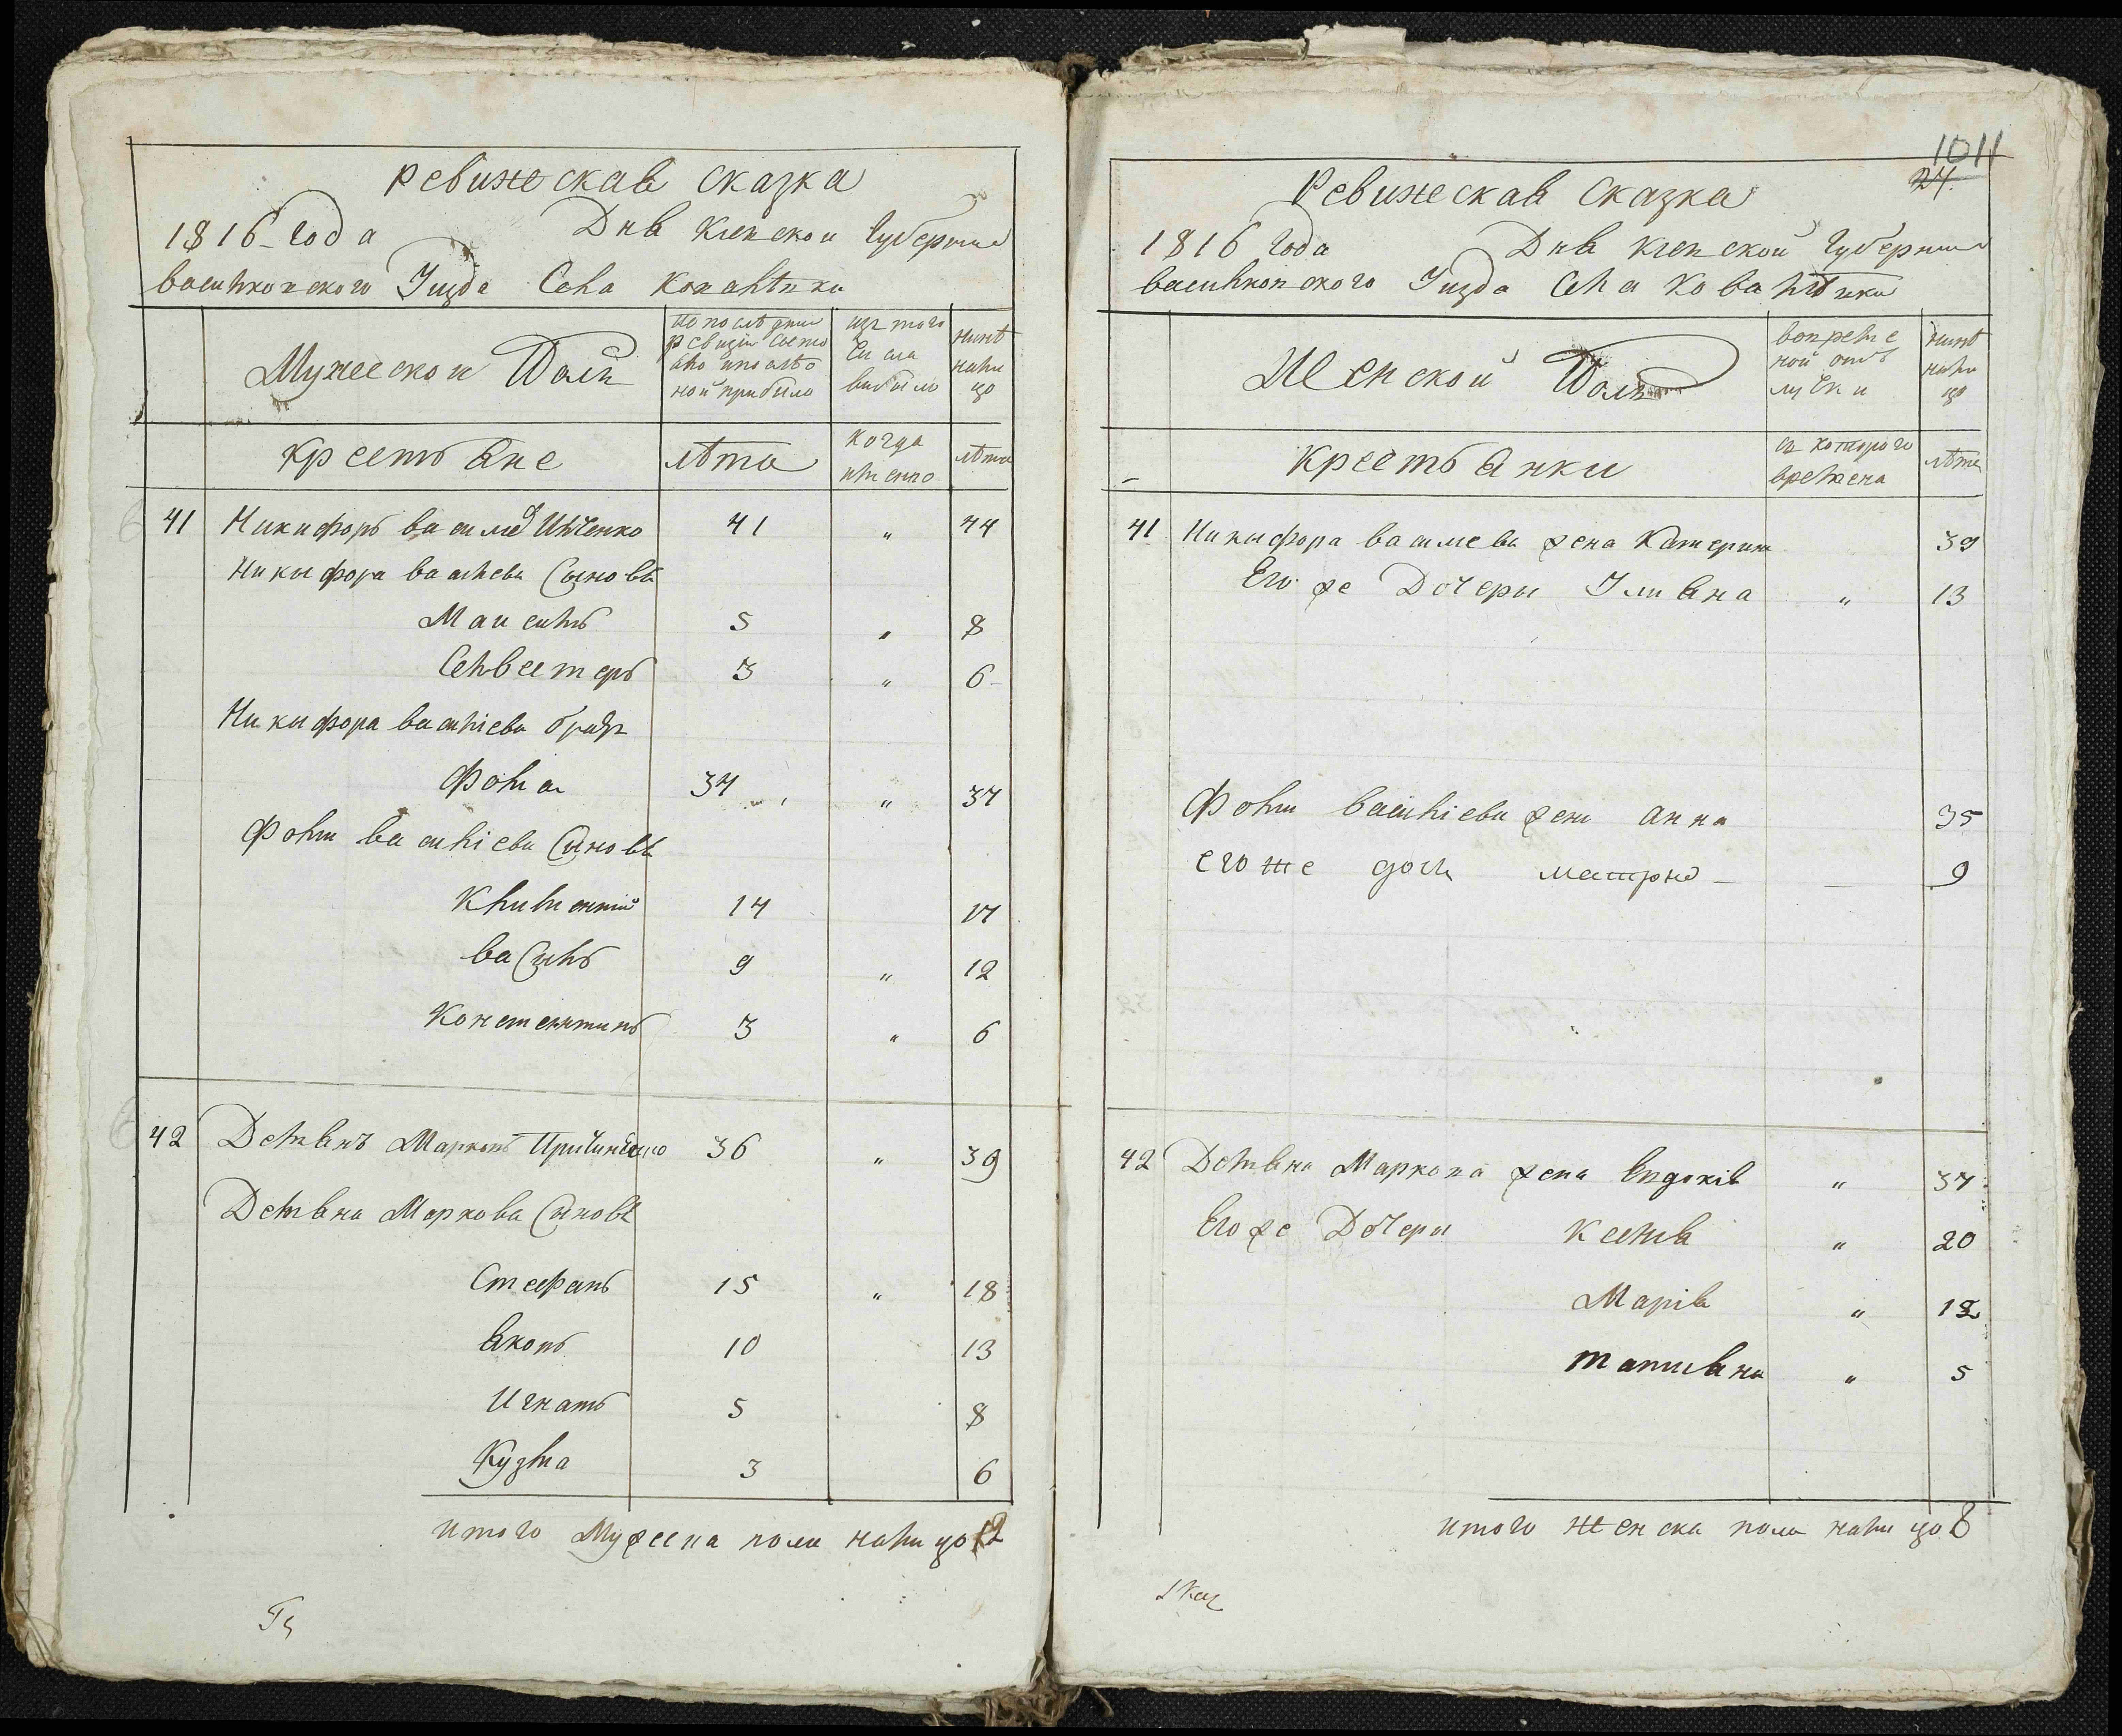 ревижеская сказка
1816 года Дня Киевской Губернии
василковского Уизда Села Ковалѣвки
Мужеской Полъ
по последнии ревизіи состо яло и после оной прибило
изъ того числа вибыло
нинѣ налицо
крестьяне
лѣта
когда именно
лѣта
41 Никифоръ василіев Илченко 41 " 44
Никифора василева Сыновя
Маисилъ 5 " 8
Селвестеръ 3 " 6
Никифора василіева братъ
Фома 34 " 37
Фоми василіева Сыновя
Климентий 14 17
василъ 9 " 12
Констентинъ 3 " 6
42 Демянъ Марковъ Причиненко 36 " 39
Демяна Маркова Сыновя
Стефанъ 15 " 18
Яковъ 10 13
Игнатъ 5 8
Кузма 3 6
итого Мужеска пола налицо 12
1011
24
Ревижеская Сказка
1816 Года Дня Киевской Губернии
василковского Уизда Села Ковалѣвки
Женской Полъ
вовреме ной отлучки
нинѣ налицо
крестьянки
съ которого времена
лѣта
41 Никифора василева жена Катерина 39
Его же Дочеры Улияна " 13
Фоми василіева жена анна 35
его же дочь матрна — — 9
42 Демяна Маркова жена Евдокія " 37
Его же Дочеры Ксения " 20
Марія " 12
татияна " 5
итого женска пола налицо 8